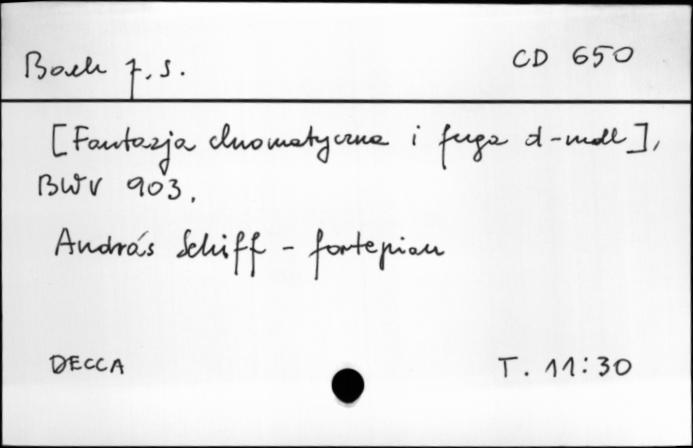 Bach J. S.
CD 650
[Fantazja chromatyczna i fuga d-moll],
BWV 903.
András Schiff - fortepian
DECCA
T. 11:30